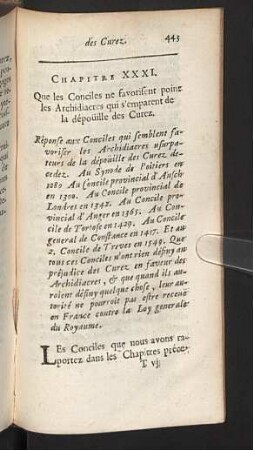 des Curez. 443
CHAPITRE XXXI.
Que les Conciles ne favorisent point
les Archidiacres qui s'emparent de
la dépoüille des Curez.
Réponse aux Conciles qui semblent fa-
voriser les Archidiacres usurpa-
teurs de la dépoüille des Curez de-
cedez. Au Synode de Poitiers en
1280 Au Concile provincial d'Ausch
en 1300. Au Concile provincial de
Londres en 1342. Au Concile pro-
vincial d'Anger en 1365. Au Conci-
le de Tortose en 1429. Au Concile
general de Constance en 1417. Et au
2. Concile de Treves en 1549. Que
tous ces Conciles n'ont rien définy au
préjudice des Curez en faveur des
Archidiacres, & que quand ils au-
roient définy quelque chose, leur au-
torité ne pourroit pas estre receuë
en France contre la Loy generale
du Royaume.
LEs Conciles que nous avons ra-
portez dans les Chapitres préce-
T vj